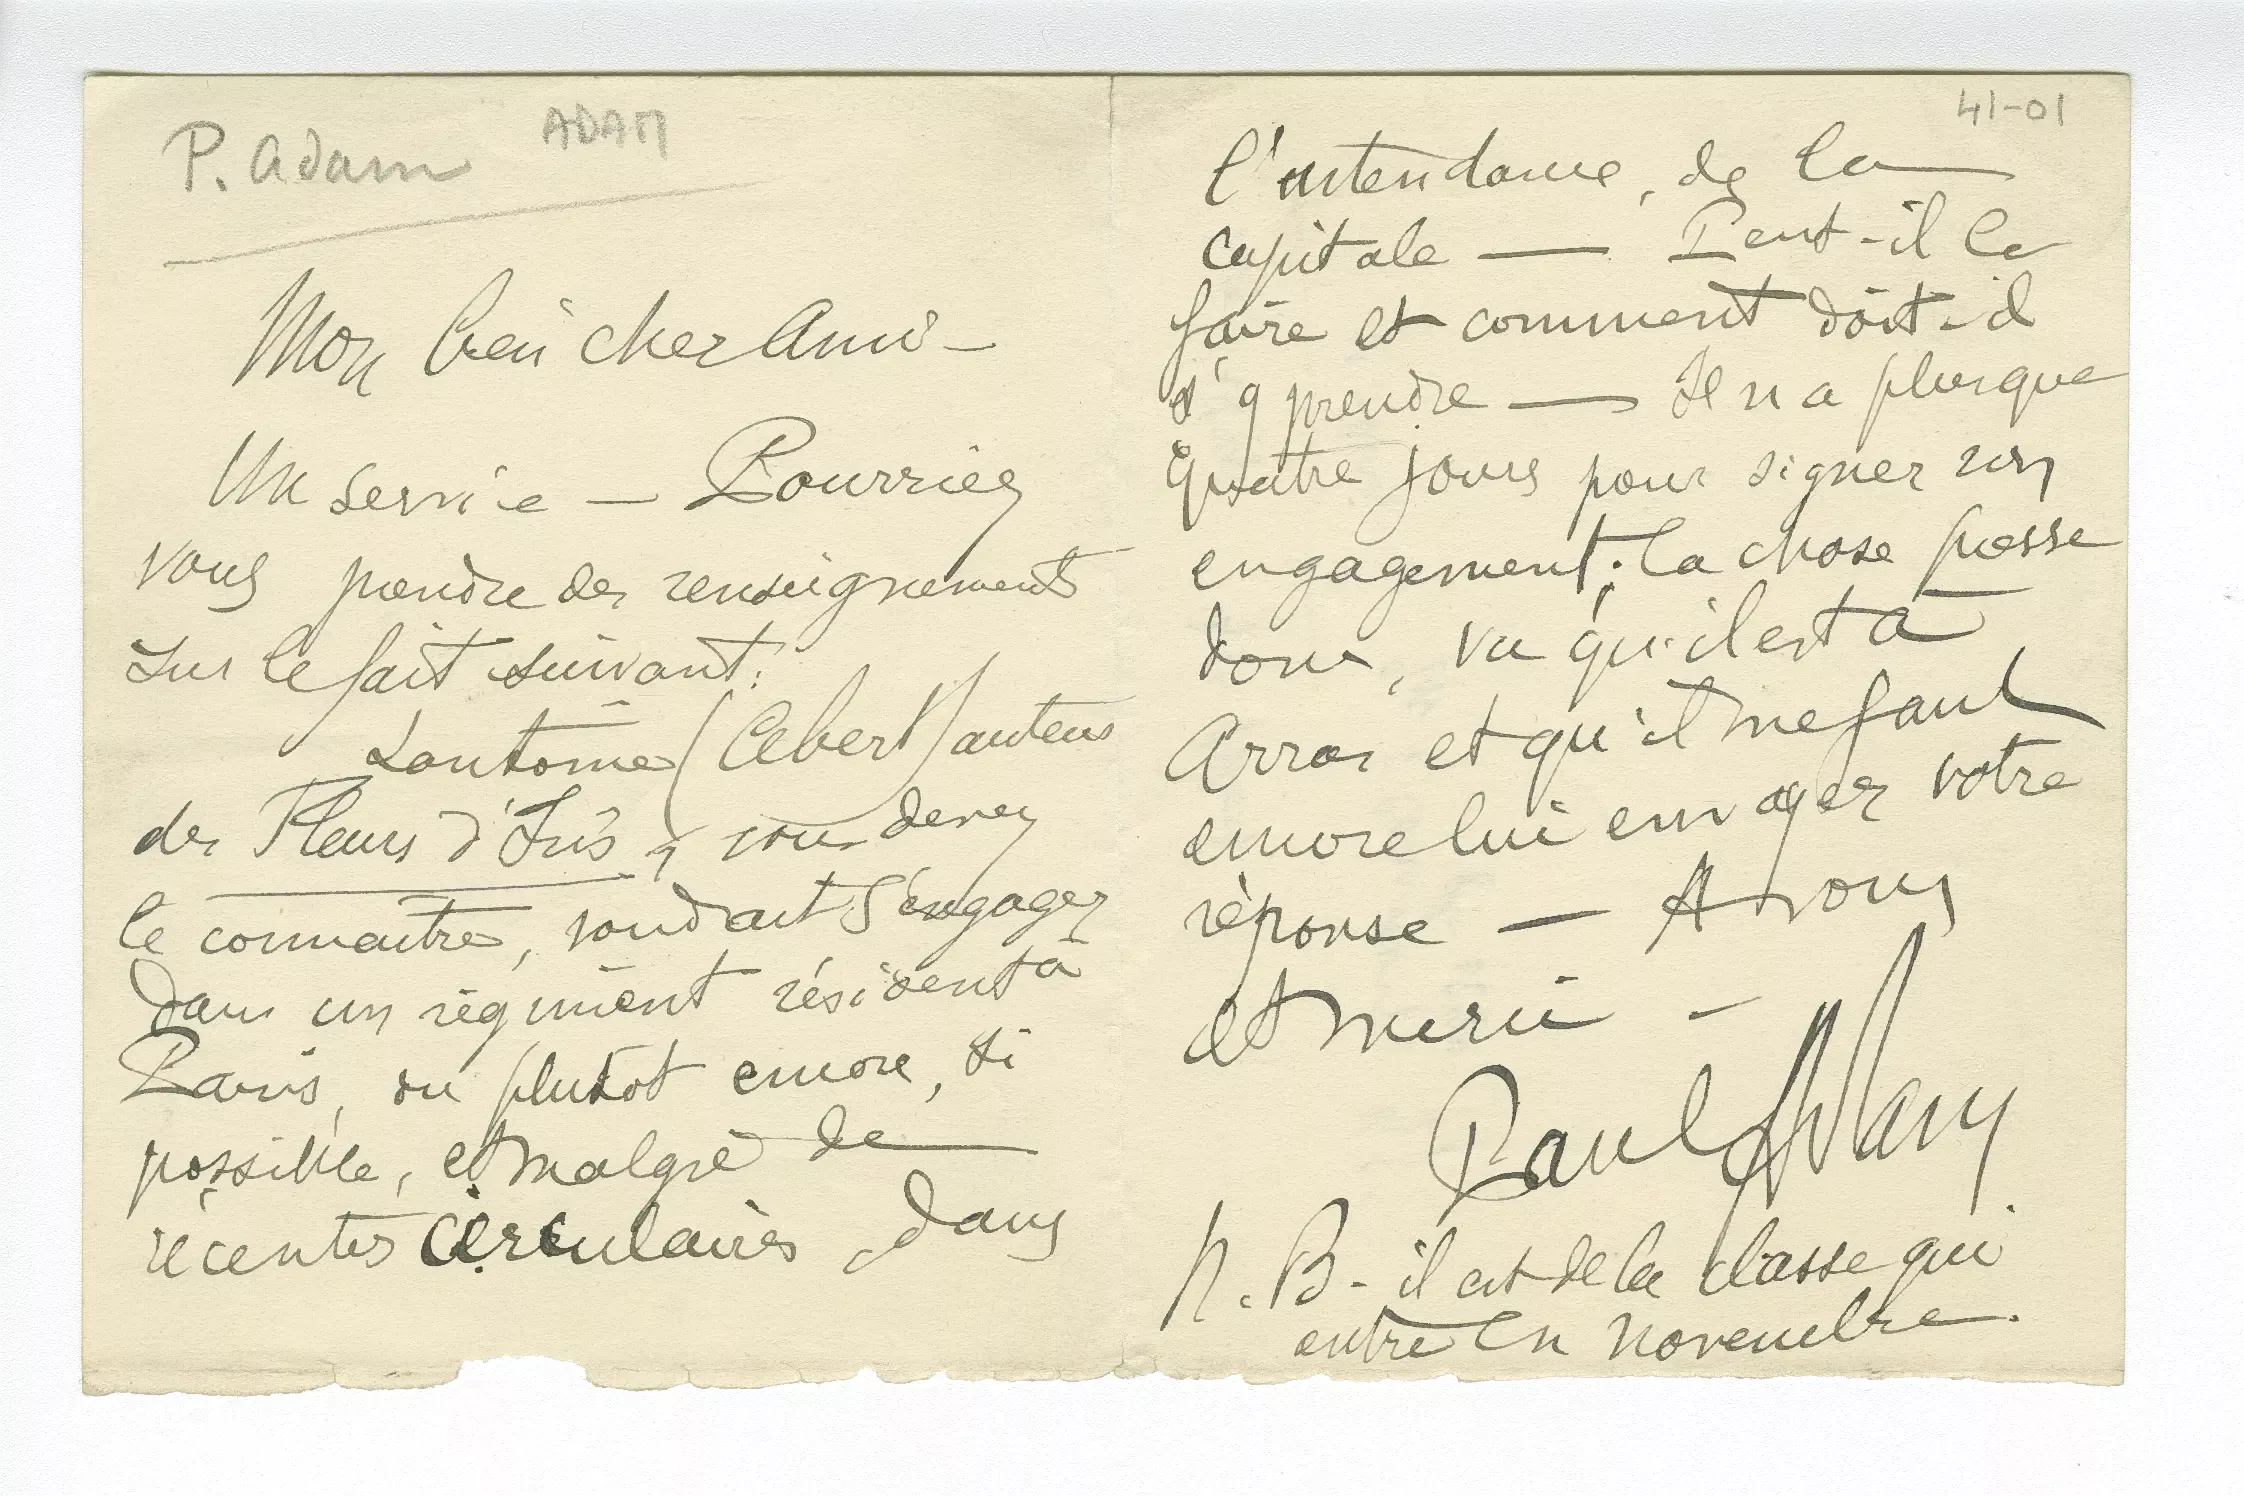 P. Adam
ADAM
Mon bien cher Ami –
Un service — Pourriez
vous prendre des renseignements
sur le fait suivant:
Lantoine (Albert) auteur
des Fleurs d'Iris, vous devez
le connaître, voudrait s'engager
dans un régiment résident à
Paris, ou plutôt encore, si
possible, et malgré de
récentes circulaires, dans
41-01
l'intendance, de la
capitale — Peut-il le
faire et comment doit-il
s'y prendre — Il n'a plus que
quatre jours pour signer son
engagement; la chose presse
donc, vu qu'il est à
Arras et qu'il me faut
encore lui envoyer votre
réponse — A vous
et merci –
Paul Adam
N.B- il est de la classe qui
entre en novembre.